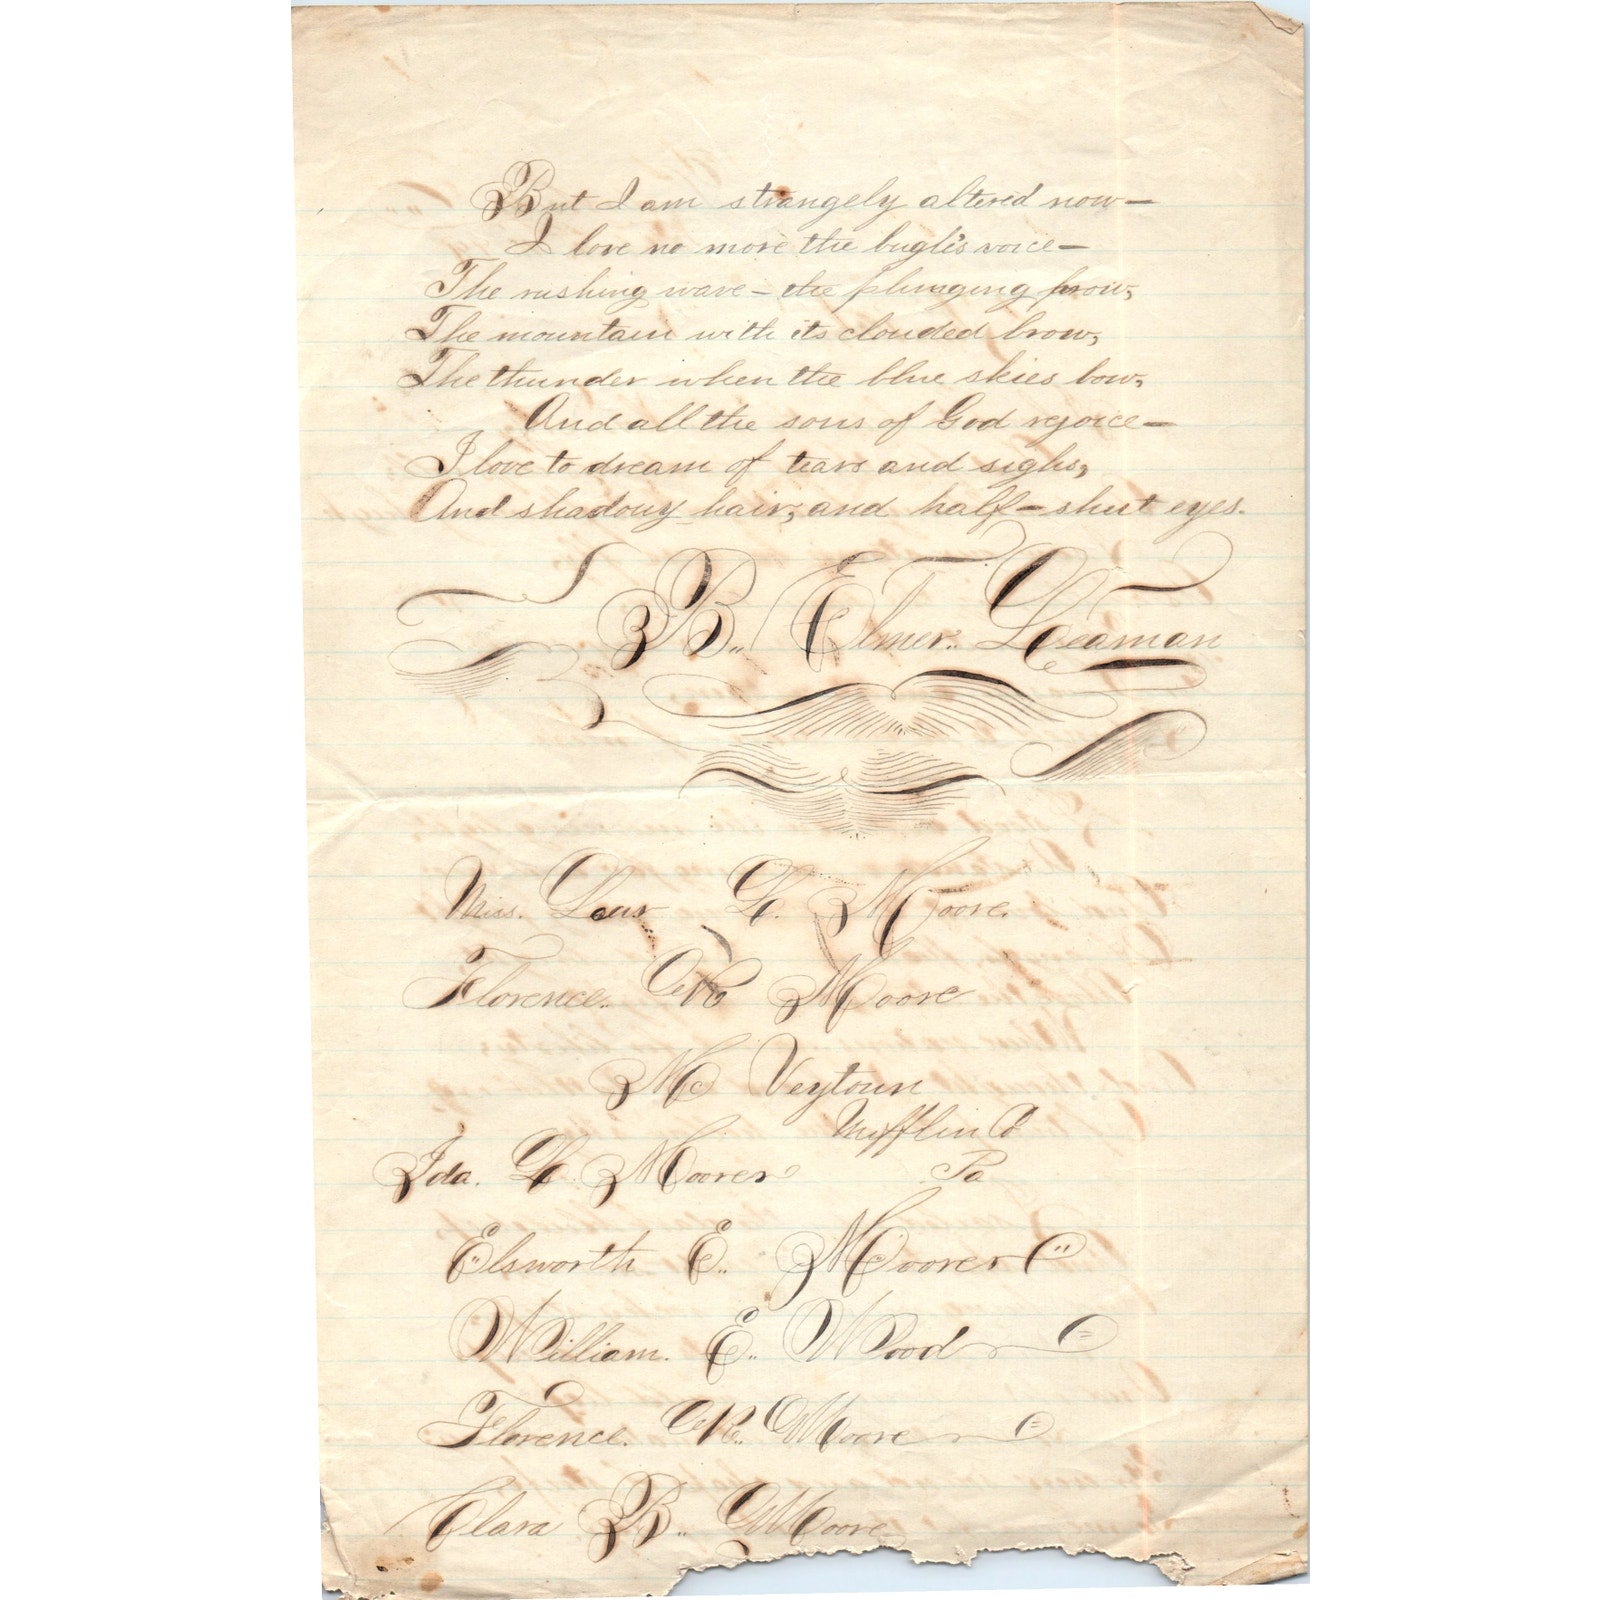 But I am strangely altered now—
I love no more the bugle's voice—
The rushing wave — the plunging prow,
The mountain with its clouded brow,
The thunder when the blue skies bow,
And all the sons of God rejoice—
I love to dream of tears and sighs,
And shadowy hair, and half-shut eyes.
B. Elmer. Leaman
Miss. L. Moore.
Florence. R Moore
Mc Veytown
Mifflin Co
Pa
Ida. L. Moore
Elsworth E. Moore
William. E. Wood
Florence. R. Moore
Clara B. Moore